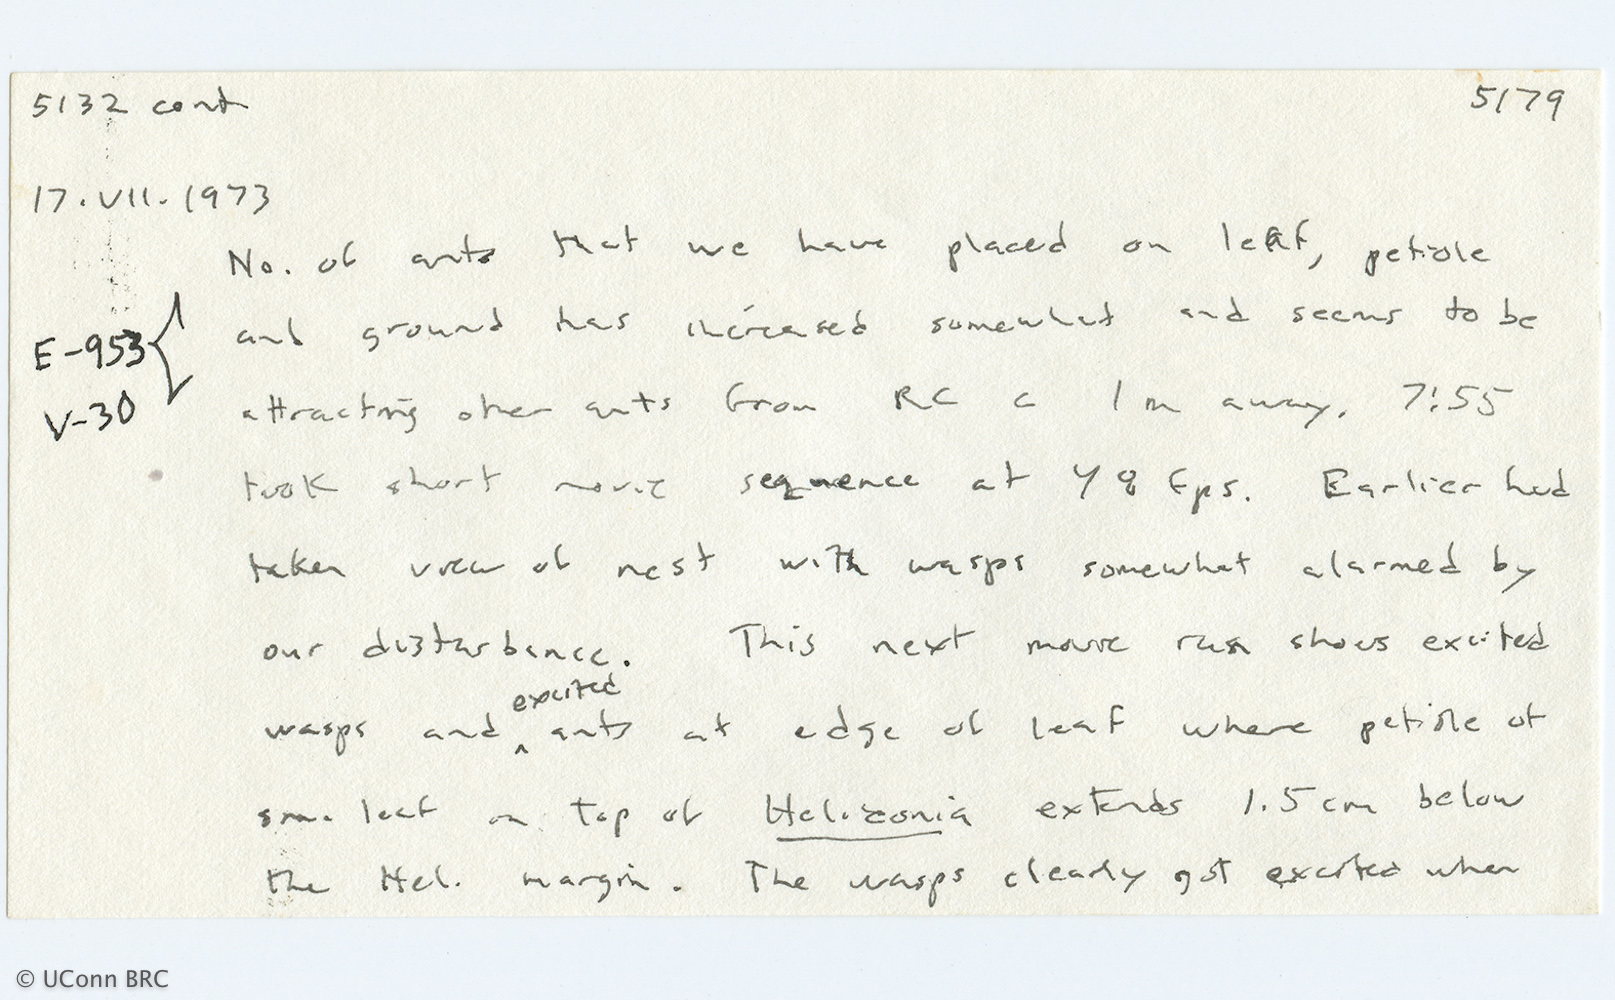 5132 cont 5179
17.VII.1973
No. of ants that we have placed on leaf, petiole
E-953 and ground has increased somewhat and seems to be
V-30 attracting other ants from RC c 1 m away. 7:55
took short movie sequence at 48 fps. Earlier had
taken view of nest with wasps somewhat alarmed by
our disturbance. This next movie run shows excited
excited
wasps and ^ ants at edge of leaf where petiole of
sm. leaf on top of Heliconia extends 1.5 cm below
the Hel. margin. The wasps clearly got excited when
© UConn BRC